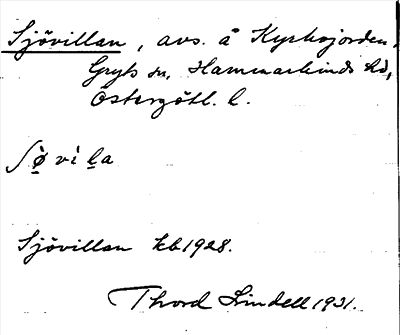 Sjövillan, avs. å Kyrkojorden,
Gryts sn, Hammarkinds hd,
Östergötl. l.
ʃø̠̀ vì l̠a
Sjövillan kb 1928.
Thord Lindell 1931.